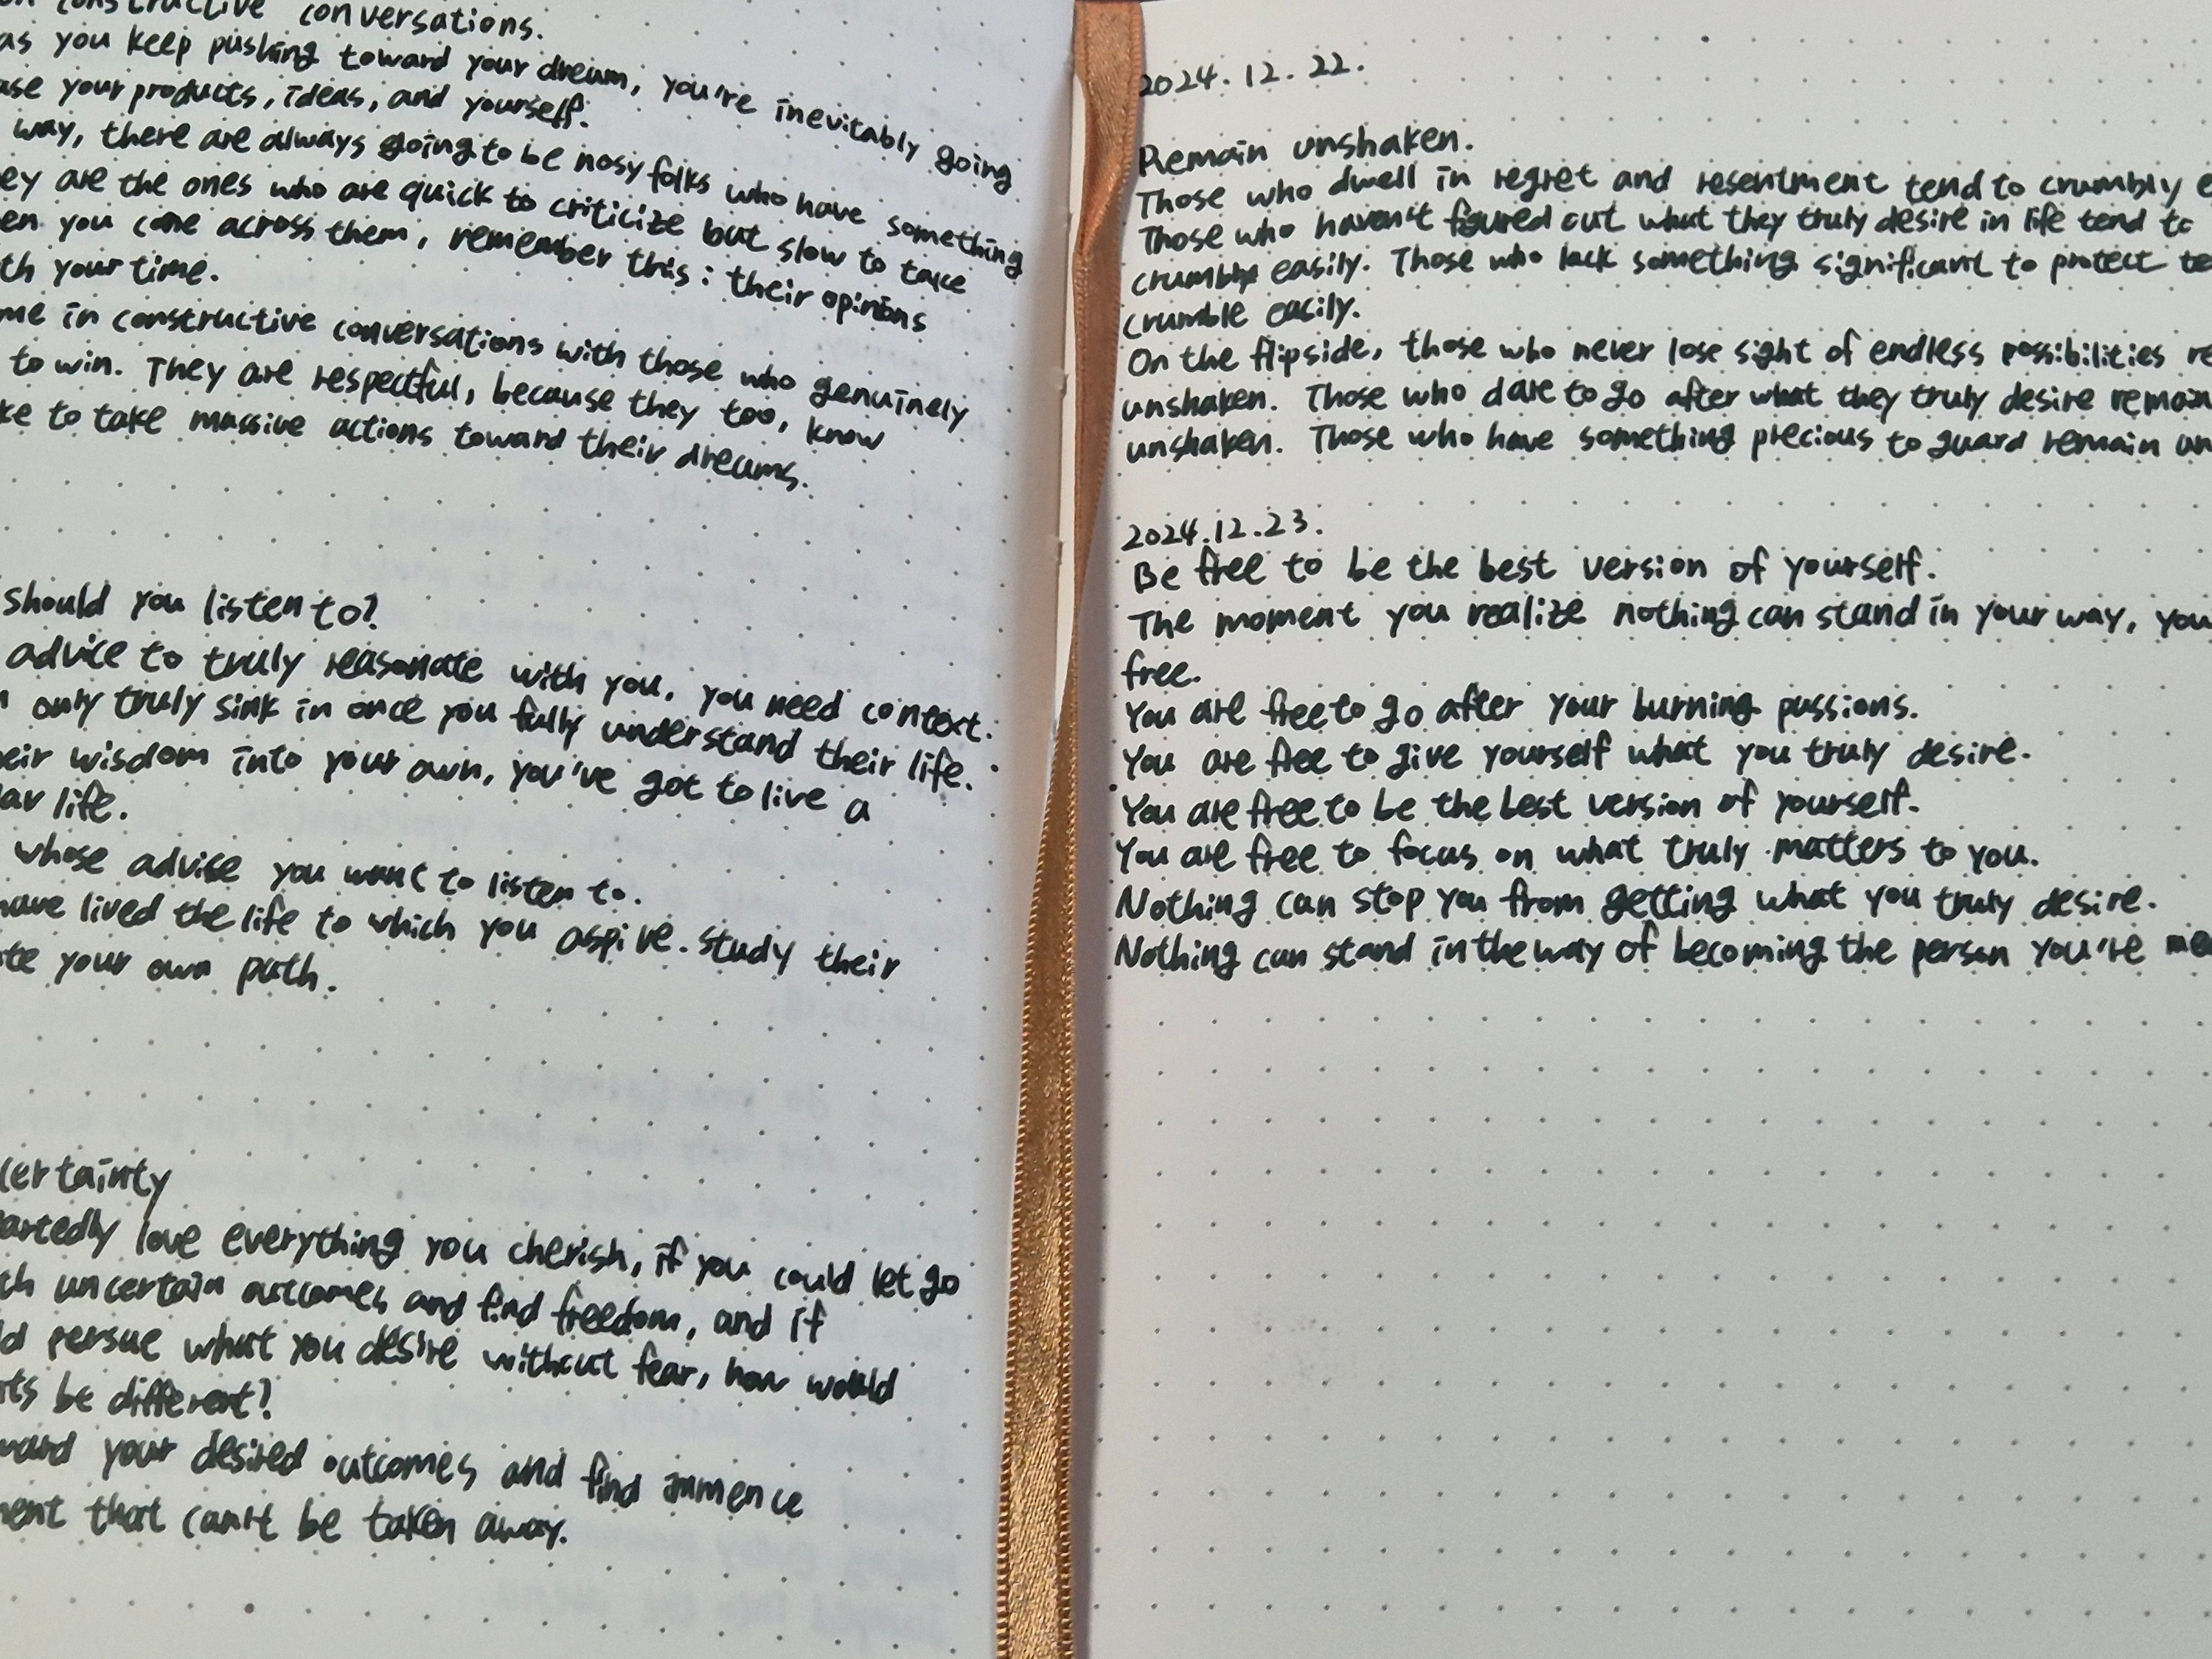 constructive conversations.
as you keep pushing toward your dream, you're inevitably going
your products, ideas, and yourself.
way, there are always going to be nosy folks who have something
ey are the ones who are quick to criticize but slow to take
en you come across them, remember this: their opinions
th your time.
me in constructive conversations with those who genuinely
to win. They are respectful, because they too, know
ke to take massive actions toward their dreams.
should you listen to?
advice to truly reasonate with you, you need context.
only truly sink in once you fully understand their life.
eir wisdom into your own, you've got to live a
ar life.
whose advise you want to listen to.
have lived the life to which you aspire. study their
te your own path.
certainty
artedly love everything you cherish, if you could let go
th uncertain outcomes and find freedom, and if
ld persue what you desire without fear, how would
ts be different?
ward your desired outcomes and find immence
ment that can't be taken away.
2024.12.22.
Remain unshaken.
Those who dwell in regret and resentment tend to crumbly e
Those who haven't figured out what they truly desire in life tend to
easily. Those who lack something significant to protect te
crumble easily.
On the flipside, those who never lose sight of endless possibilities re
unshaken. Those who dare to go after what they truly desire remain
unshaken. Those who have something precious to guard remain un
2024.12.23.
Be free to be the best version of yourself.
The moment you realize nothing can stand in your way, you
free.
You are free to go after your burning passions.
You are free to give yourself what you truly desire.
You are free to be the best version of yourself.
You are free to focus on what truly matters to you.
Nothing can stop you from getting what you truly desire.
Nothing can stand in the way of becoming the person you're mea